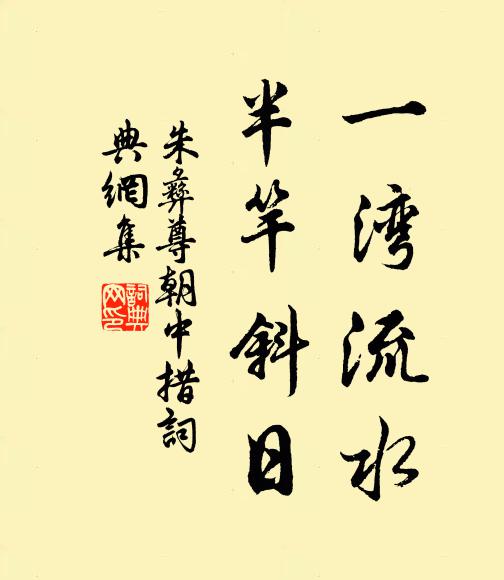 一湾流水
半竿斜日
朱彝尊朝中措詞
典網集
詞典
网印